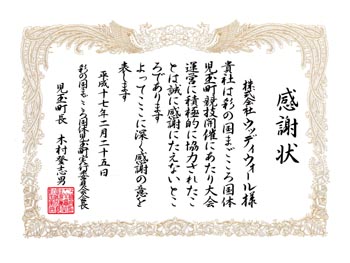 感謝状
株式会社 ウッディウォール様
貴社は彩の国まごころ国体
児玉町競技開催にあたり大会
運営に積極的に協力されたこ
とは誠に感謝にたえないとこ
ろであります
よってここに深く感謝の意を
表します
平成十七年二月二十五日
彩の国まごころ国体児玉町実行委員会会長
児玉町長 木村登志男